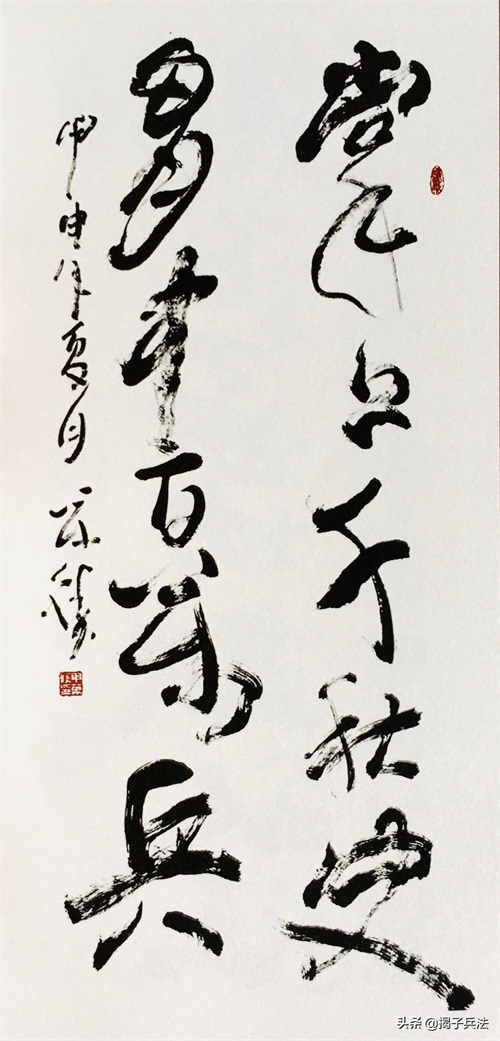 掌上千秋史
胸中百萬兵
甲申年夏月
头条 @揭子兵法